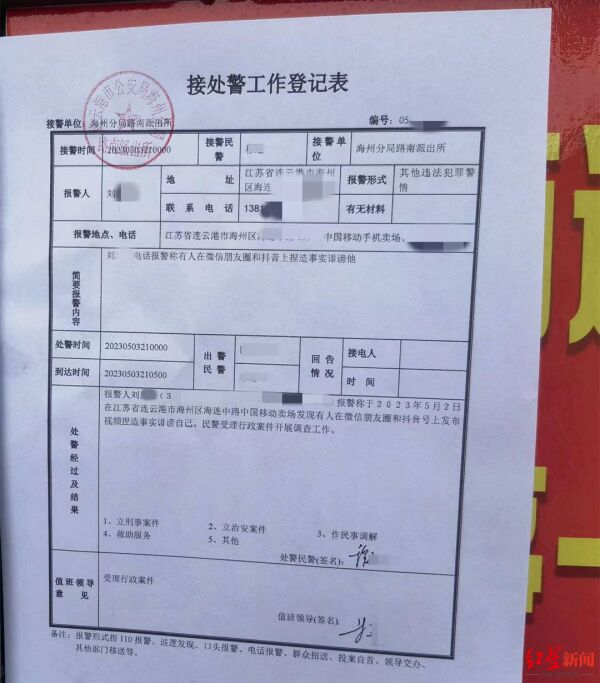 接处警工作登记表
接警单位：海州分局路南派出所 编号：05
接警时间 20230503210000 接警民警 接警单位 海州分局路南派出所
报警人 刘 地址 江苏省连云港市海州区海连 报警形式 其他违法犯罪警情
联系电话 1381 有无材料
报警地点、电话 江苏省连云港市海州区 中国移动手机卖场、
简要报警内容 刘 电话报警称有人在微信朋友圈和抖音上捏造事实诽谤他
处警时间 20230503210000 出警民警 回告情况 接电人
到达时间 20230503210500 时间
处警经过及结果
报警人刘 （3 报警称于2023年5月2日
在江苏省连云港市海州区海连中路中国移动卖场发现有人在微信朋友圈和抖音号上发布
视频捏造事实诽谤自己。民警受理行政案件开展调查工作。
1、立刑事案件 2、立治安案件 3、作民事调解
4、救助服务 5、其他
处警民警（签名）：
值班领导意见 受理行政案件
值班领导（签名）：
备注：报警形式指110报警、巡逻发现、口头报警、电话报警、群众扭送、投案自首、领导交办、
其他部门移送等。
红星新闻